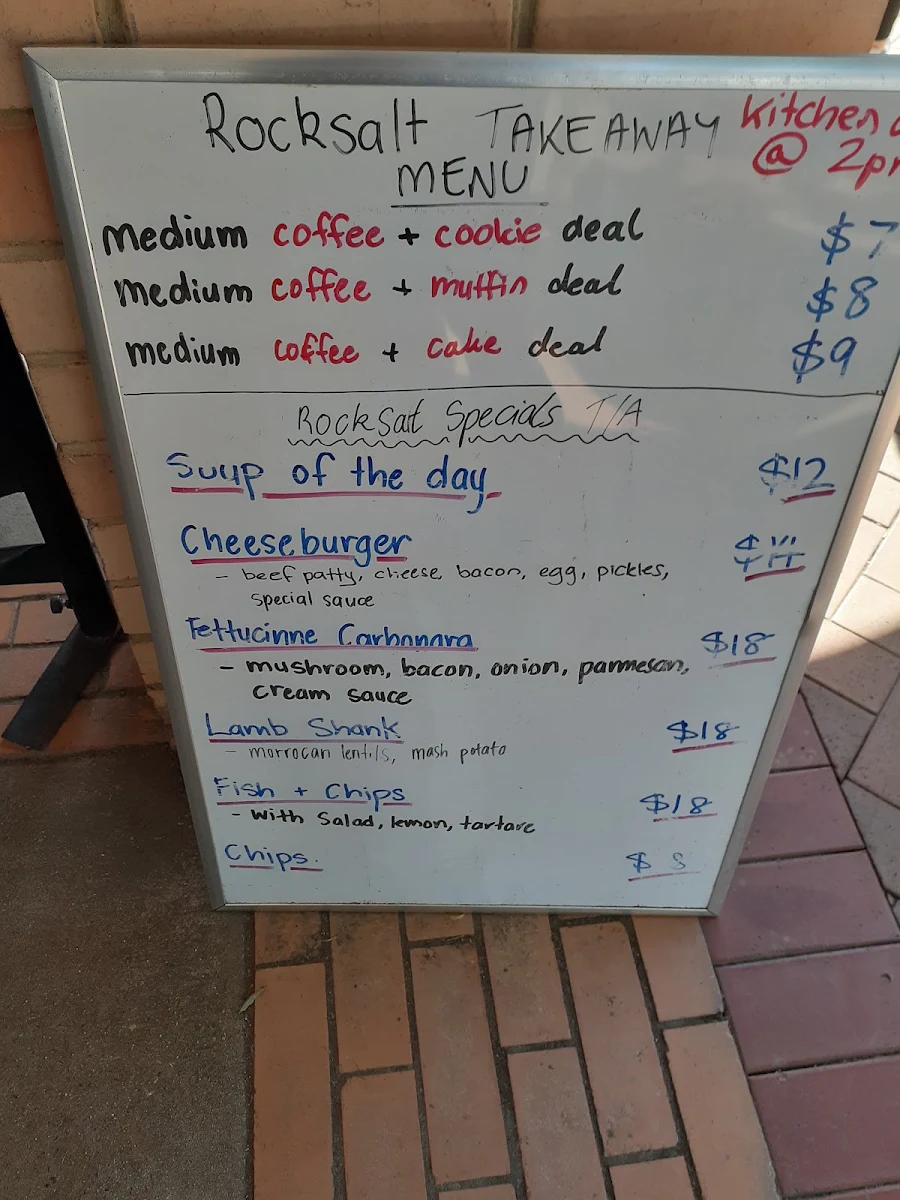 Rocksalt TAKEAWAY MENU
Kitchen
@ 2pm
medium coffee + cookie deal $7
medium coffee + muffin deal $8
medium coffee + cake deal $9
Rocksalt Specials T/A
Soup of the day $12
Cheeseburger
- beef patty, cheese, bacon, egg, pickles,
special sauce
Fettucinne Carbonara $18
- mushroom, bacon, onion, parmesan,
cream sauce
Lamb Shank $18
- morrocan lentils, mash potato
Fish + Chips $18
- with Salad, lemon, tartare
Chips. $8